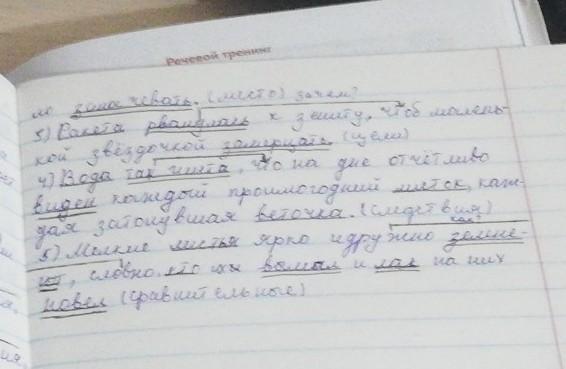 Речевой тренинг
ло заночевать. (место) зачем?
3) Ракета рванулась к зениту, чтоб малень-
кой звёздочкой замерцать. (цели)
4) Вода так чиста, что на дне отчётливо
виден каждый прошлогодний листок, каж-
дая затонувшая веточка. (следствия)
как?
5) Мелкие листья ярко и дружно зелене-
ют, словно кто их вымыл и лак на них
навел (сравнительные)